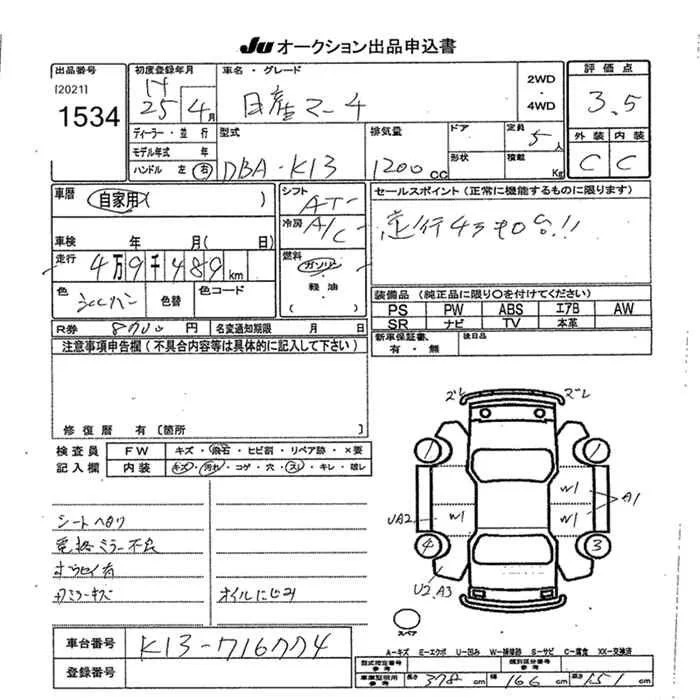 Ju オークション出品申込書
出品番号
[2021]
1534
初度登録年月
H
25 4 月
車名・グレード
日産マーチ
2WD
・
4WD
評価点
3.5
外装 内装
C C
ディーラー・並行
モデル年式 年
ハンドル 左 右
型式
DBA-K13
排気量
1200 CC
ドア
形状
定員
5人
積載
Kg
車歴
自家用( )
車検 年 月( 日)
走行
4万9千489 km
色
色替
色コード
R券 8700 円
名変通知期限 月 日
シフト
AT
冷房
A/C
燃料
ガソリン
・
軽油
・
( )
セールスポイント(正常に機能するものに限ります)
走行4万キロ台!!
装備品 (純正品に限り○を付けてください)
PS PW ABS エアB AW
SR ナビ TV 本革
新車保証書、
有・無
後日品
注意事項申告欄(不具合内容等は具体的に記入して下さい)
修復歴 有[箇所 ]
検査員
記入欄
FW キズ・飛石・ヒビ割・リペア跡・×要
内装 キズ・汚れ・コゲ・穴・スレ・キレ・破レ
シートヘタリ
電格ミラー不良
オイルにじみ
ズレ ズレ
1 1
W1
A1
UA2 W1 W1
4 3
U2.A3
スペア
A-キズ E-エクボ U-凹み W-補修跡 S-サビ C-腐食 XX-交換済
車台番号 K13-716774
登録番号
型式指定番号
参考
類別区分番号
参考
車庫証明用
参考
長さ 378 cm 幅 166 cm 高さ 151 cm